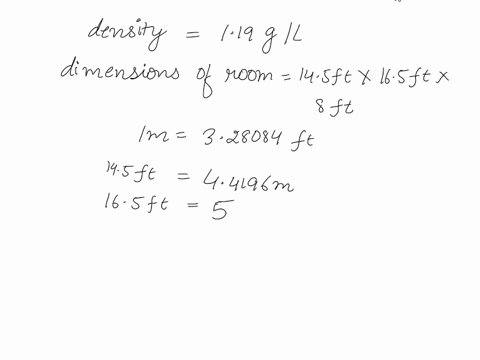 density = 1.19 g/L
dimensions of room = 14.5ft X 16.5ft X
8 ft
1m = 3.28084 ft
14.5ft = 4.4196m
16.5ft = 5